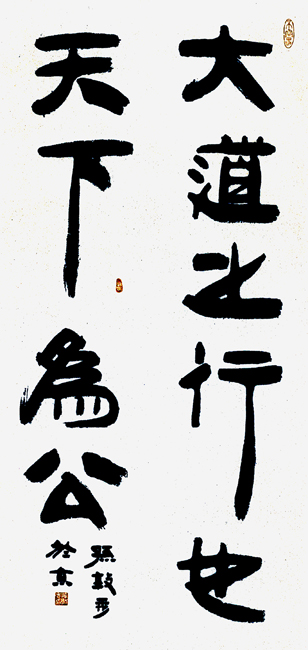 大道之行也
天下為公
孫敦秀
於京